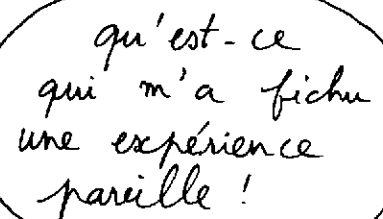 qu'est-ce
qui m'a fichu
une expérience
pareille !